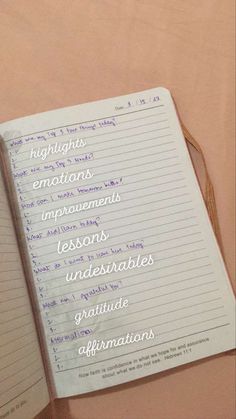 Date: 3 / 19 / 23
What are my Top 3 best things today?
1.
highlights
2.
3.
What are my Top 3 moods?
1.
emotions
2.
3.
How can I make tomorrow better?
1.
improvements
2.
3.
What did I learn today?
1.
lessons
2.
3.
What do I want to leave here today?
1.
undesirables
2.
3.
What am I grateful for?
1.
gratitude
2.
3.
Affirmations:
1.
affirmations
2.
3.
Now faith is confidence in what we hope for and assurance
about what we do not see. Hebrews 11:1